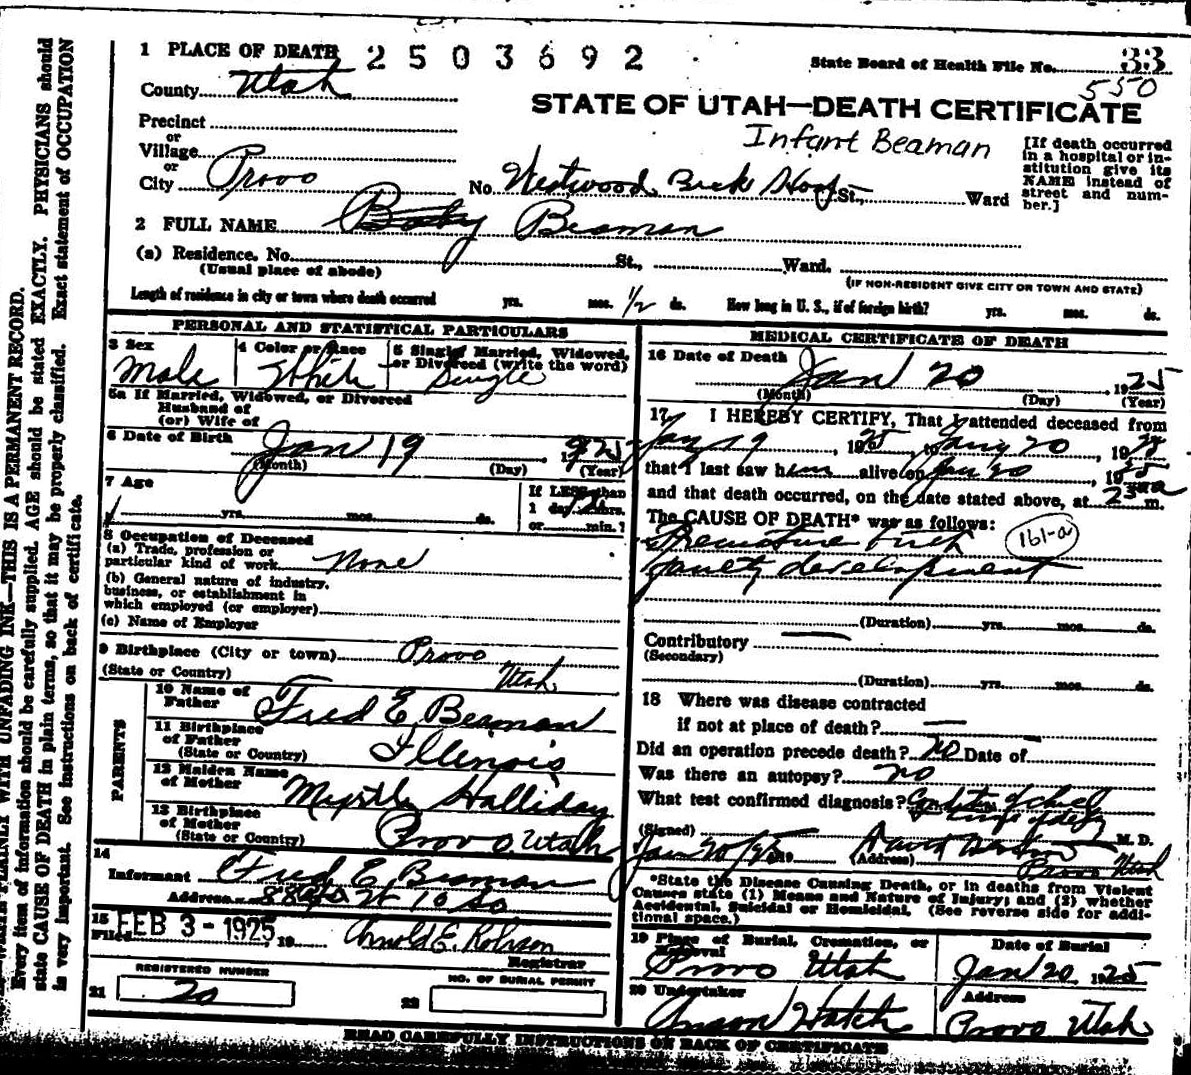 1 PLACE OF DEATH 2503692
State Board of Health File No. 33
550
County Utah
STATE OF UTAH—DEATH CERTIFICATE
Infant Beaman
Precinct
or
Village
or
City Provo No. Westwood St., Ward
[If death occurred
in a hospital or in-
stitution give its
NAME instead of
street and num-
ber.]
2 FULL NAME Baby Beaman
(a) Residence. No. St., Ward.
(Usual place of abode)
(IF NON-RESIDENT GIVE CITY OR TOWN AND STATE)
Length of residence in city or town where death occurred yrs. mos. 1/2 ds. How long in U. S., if of foreign birth? yrs. mos. ds.
PERSONAL AND STATISTICAL PARTICULARS
3 Sex
Male
4 Color or Race
White
5 Single, Married, Widowed,
or Divorced (write the word)
Single
5a If Married, Widowed, or Divorced
Husband of
(or) Wife of
6 Date of Birth Jan 19, 1925
(Month) (Day) (Year)
7 Age
yrs. mos. ds.
If LESS than
1 day 12 hrs.
or min.?
8 Occupation of Deceased
(a) Trade, profession or
particular kind of work None
(b) General nature of industry,
business, or establishment in
which employed (or employer)
(c) Name of Employer
9 Birthplace (City or town) Provo
(State or Country) Utah
PARENTS
10 Name of
Father Fred E. Beaman
11 Birthplace
of Father
(State or Country) Illenois
12 Maiden Name
of Mother Myrtle Halliday
13 Birthplace
of Mother
(State or Country) Provo Utah
14
Informant Fred E Beaman
Address
15
Filed FEB 3 - 1925 19 Arnold E. Robison
Registrar
REGISTERED NUMBER
21 20
NO. OF BURIAL PERMIT
22
MEDICAL CERTIFICATE OF DEATH
16 Date of Death
Jan 20, 1925
(Month) (Day) (Year)
17 I HEREBY CERTIFY, That I attended deceased from
Jany 19, 1925 to Jany 20, 1925
that I last saw him alive on Jan 20, 1925
and that death occurred, on the date stated above, at m.
The CAUSE OF DEATH* was as follows:
Premature birth 161-a
faulty development
(Duration) yrs. mos. ds.
Contributory
(Secondary)
(Duration) yrs. mos. ds.
18 Where was disease contracted
if not at place of death?
Did an operation precede death? no Date of
Was there an autopsy? no
What test confirmed diagnosis? Condition of child
(Signed) M. D.
Jan 20/25 19 (Address) Provo Utah
*State the Disease Causing Death, or in deaths from Violent
Causes state (1) Means and Nature of Injury; and (2) whether
Accidental, Suicidal or Homicidal. (See reverse side for addi-
tional space.)
19 Place of Burial, Cremation, or
Removal
Provo Utah
Date of Burial
Jan 20, 1925
20 Undertaker
Anson Hatch
Address
Provo Utah
READ CAREFULLY INSTRUCTIONS ON BACK OF CERTIFICATE
PLAINLY WITH UNFADING INK—THIS IS A PERMANENT RECORD.
Every item of information should be carefully supplied. AGE should be stated EXACTLY. PHYSICIANS should
state CAUSE OF DEATH in plain terms, so that it may be properly classified. Exact statement of OCCUPATION
is very important. See instructions on back of certificate.